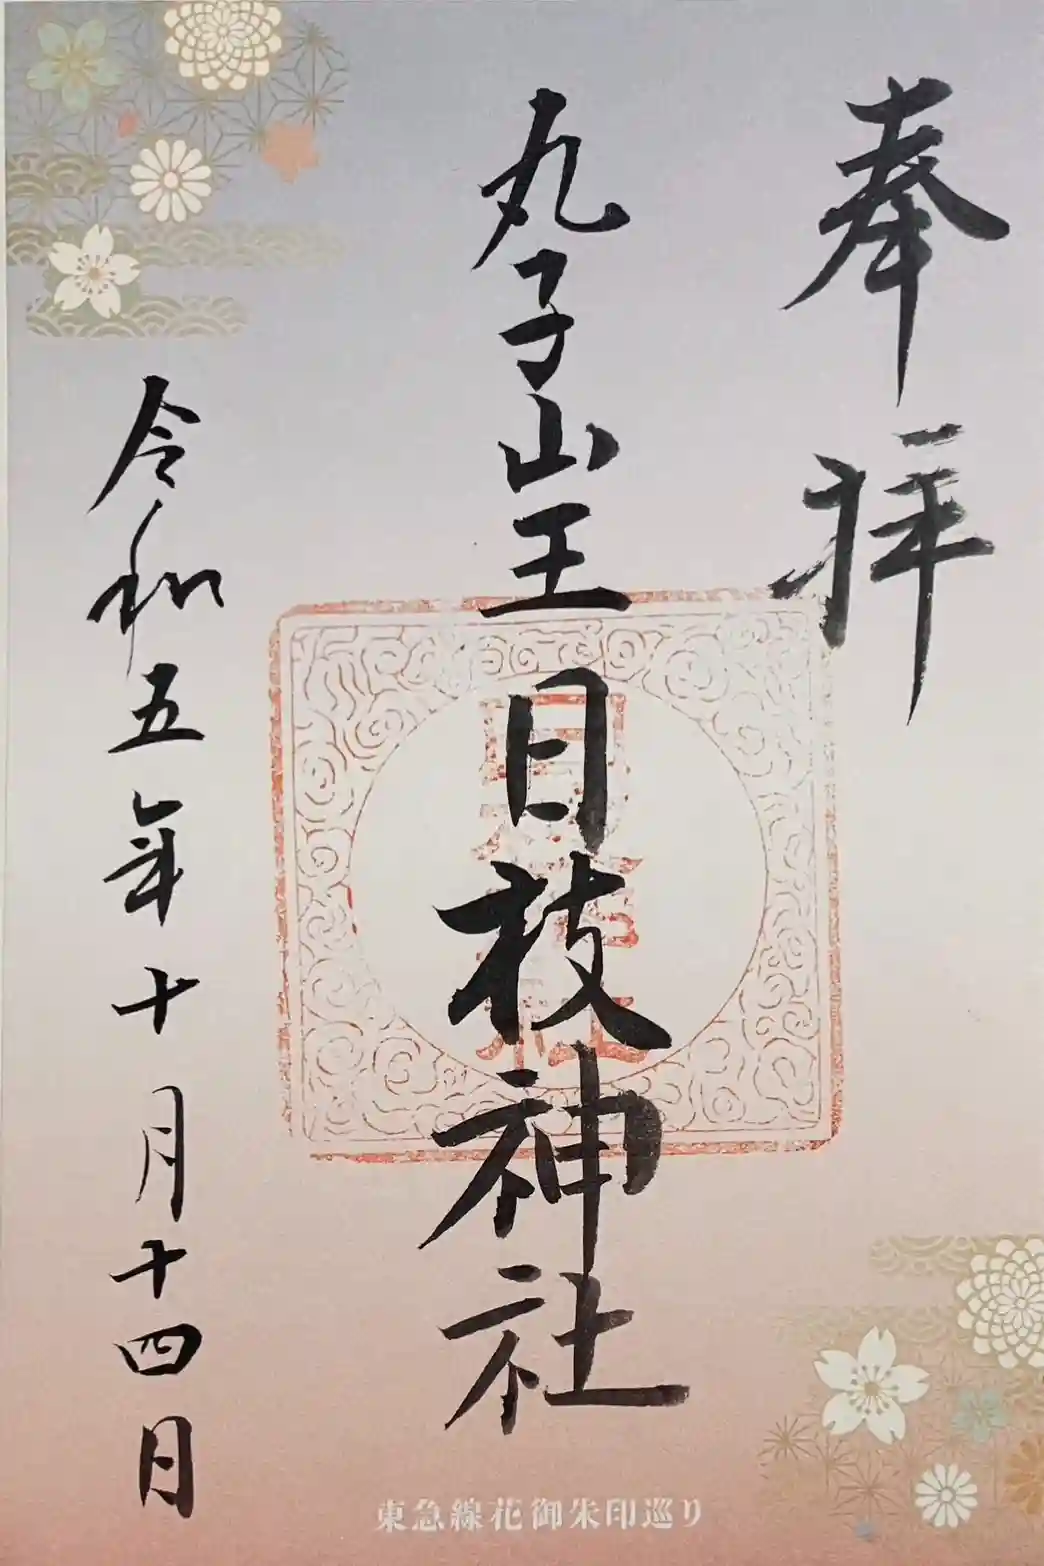 奉拝
丸子山王日枝神社
令和五年十月十四日
日枝神社
東急線花御朱印巡り